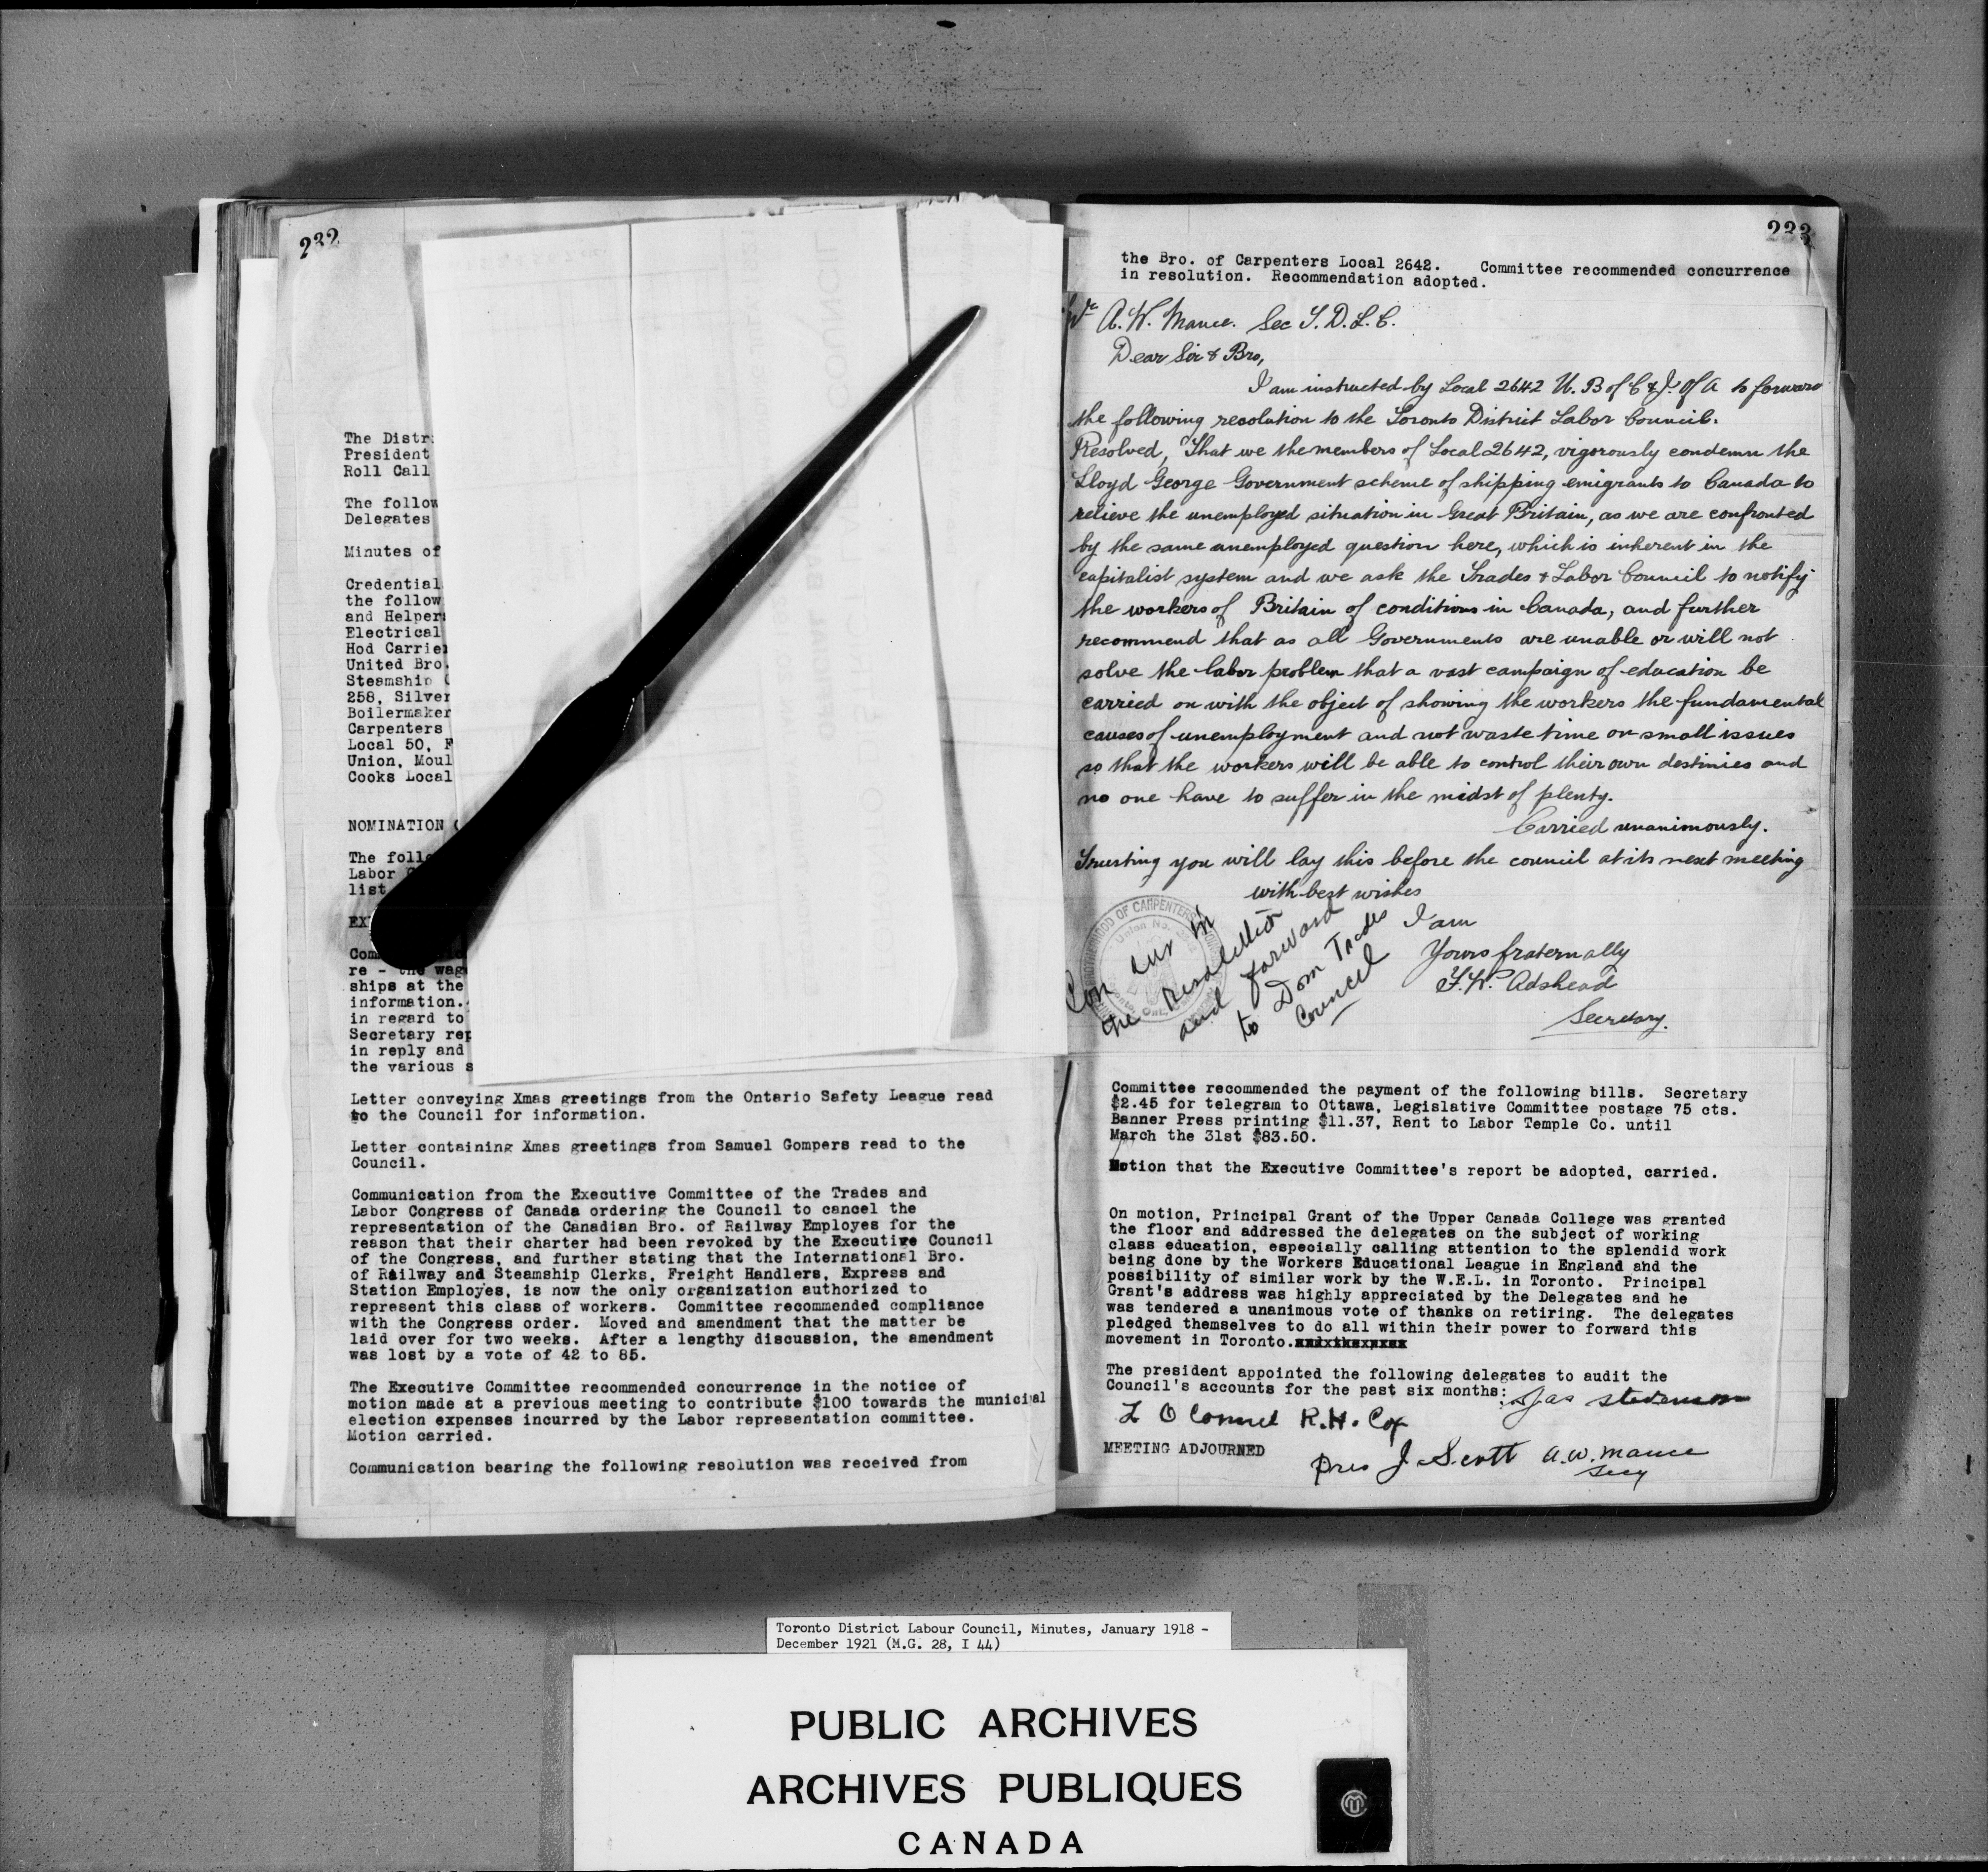 232
The Distr
President
Roll Call
The follow
Delegates
Minutes of
Credential
the follow
and Helper
Electrical
Hod Carrie
United Bro.
Steamship
258, Silver
Boilermaker
Carpenters
Local 50, F
Union, Moul
Cooks Local
NOMINATION
The follo
Labor
list
EX
Com
re - the wag
ships at the
information.
in regard to
Secretary rep
in reply and
the various s
Letter conveying Xmas greetings from the Ontario Safety League read
to the Council for information.
Letter containing Xmas greetings from Samuel Gompers read to the
Council.
Communication from the Executive Committee of the Trades and
Labor Congress of Canada ordering the Council to cancel the
representation of the Canadian Bro. of Railway Employes for the
reason that their charter had been revoked by the Executive Council
of the Congress, and further stating that the International Bro.
of Railway and Steamship Clerks, Freight Handlers, Express and
Station Employes, is now the only organization authorized to
represent this class of workers. Committee recommended compliance
with the Congress order. Moved and amendment that the matter be
laid over for two weeks. After a lengthy discussion, the amendment
was lost by a vote of 42 to 85.
The Executive Committee recommended concurrence in the notice of
motion made at a previous meeting to contribute $100 towards the municipal
election expenses incurred by the Labor representation committee.
Motion carried.
Communication bearing the following resolution was received from
233
the Bro. of Carpenters Local 2642. Committee recommended concurrence
in resolution. Recommendation adopted.
A. W. Mance. Sec T. D. L. C.
Dear Sir & Bro,
I am instructed by Local 2642 U. B of C & J. of A to forward
the following resolution to the Toronto District Labor Council.
Resolved, That we the members of Local 2642, vigorously condemn the
Lloyd George Government scheme of shipping emigrants to Canada to
relieve the unemployed situation in Great Britain, as we are confronted
by the same unemployed question here, which is inherent in the
capitalist system and we ask the Trades & Labor Council to notify
the workers of Britain of conditions in Canada, and further
recommend that as all Governments are unable or will not
solve the labor problem that a vast campaign of education be
carried on with the object of showing the workers the fundamental
causes of unemployment and not waste time on small issues
so that the workers will be able to control their own destinies and
no one have to suffer in the midst of plenty.
Carried unanimously.
Trusting you will lay this before the council at its next meeting
with best wishes
I am
Yours fraternally
F. W. Adshead
Secretary.
BROTHERHOOD OF CARPENTERS
Union No.
Ont.
Con cur in
the Resolution
and forward
to Dom Trades
Council
Committee recommended the payment of the following bills. Secretary
$2.45 for telegram to Ottawa, Legislative Committee postage 75 cts.
Banner Press printing $11.37, Rent to Labor Temple Co. until
March the 31st $83.50.
Motion that the Executive Committee's report be adopted, carried.
On motion, Principal Grant of the Upper Canada College was granted
the floor and addressed the delegates on the subject of working
class education, especially calling attention to the splendid work
being done by the Workers Educational League in England and the
possibility of similar work by the W.E.L. in Toronto. Principal
Grant's address was highly appreciated by the Delegates and he
was tendered a unanimous vote of thanks on retiring. The delegates
pledged themselves to do all within their power to forward this
movement in Toronto.
The president appointed the following delegates to audit the
Council's accounts for the past six months: Jas Stevenson
L O Connel R. H. Cox
MEETING ADJOURNED
Pres J Scott A. W. Mance
Secy
Toronto District Labour Council, Minutes, January 1918 -
December 1921 (M.G. 28, I 44)
PUBLIC ARCHIVES
ARCHIVES PUBLIQUES
CANADA